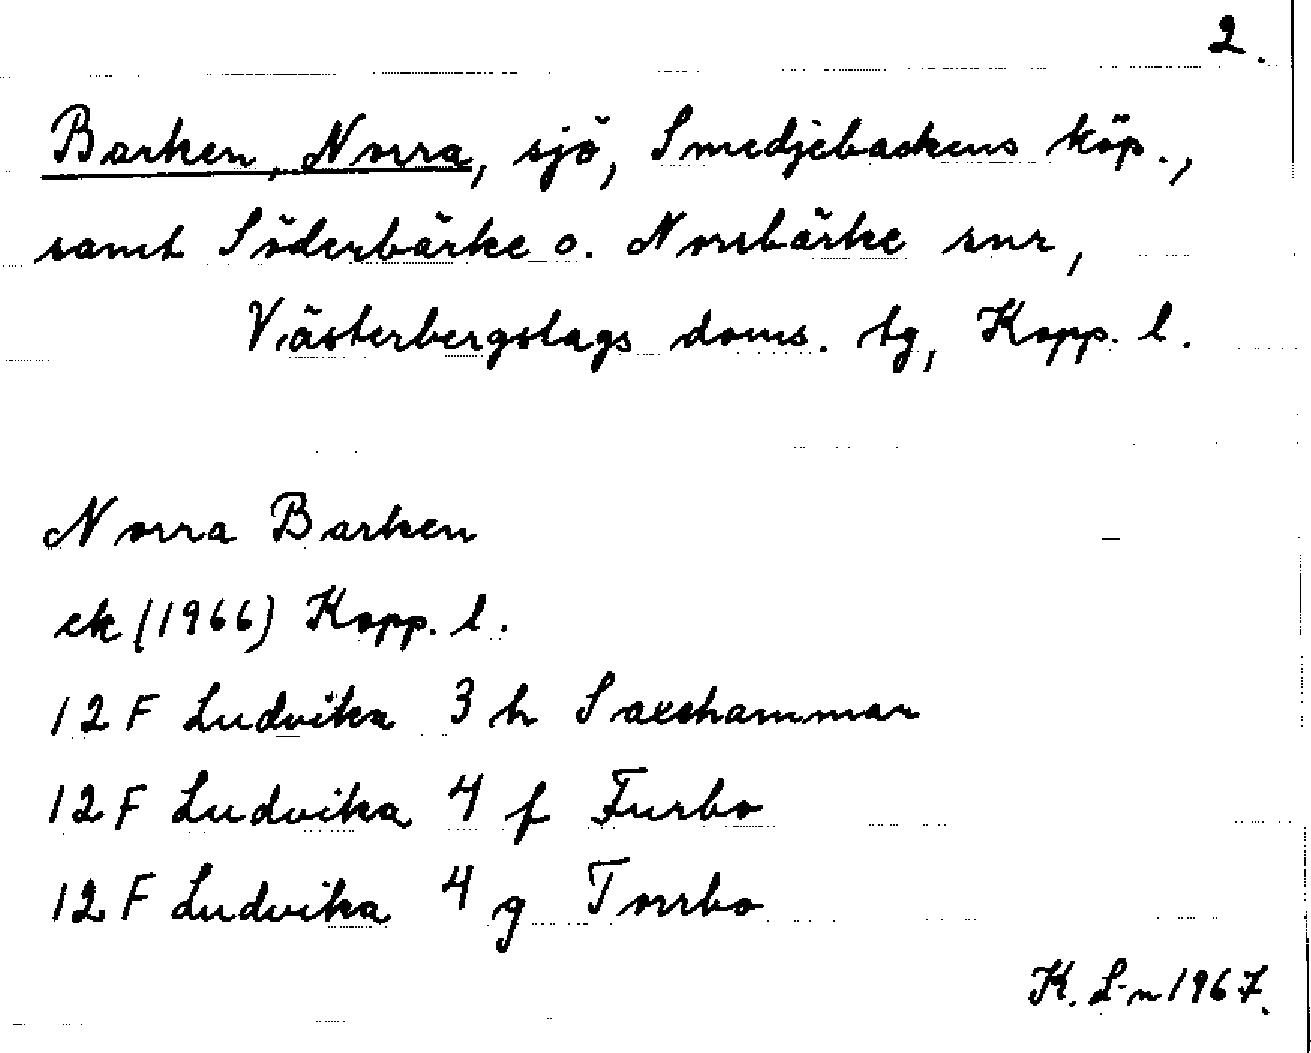 2.
Barken, Norra, sjö, Smedjebackens köp.,
samt Söderbärke o. Norrbärke snr,
Västerbergslags doms. tg, Kopp. l.
Norra Barken
ek (1966) Kopp. l.
12 F Ludvika 3 h Saxehammar
12 F Ludvika 4 f Furbo
12 F Ludvika 4 g Torrbo
K. L-n 1967.